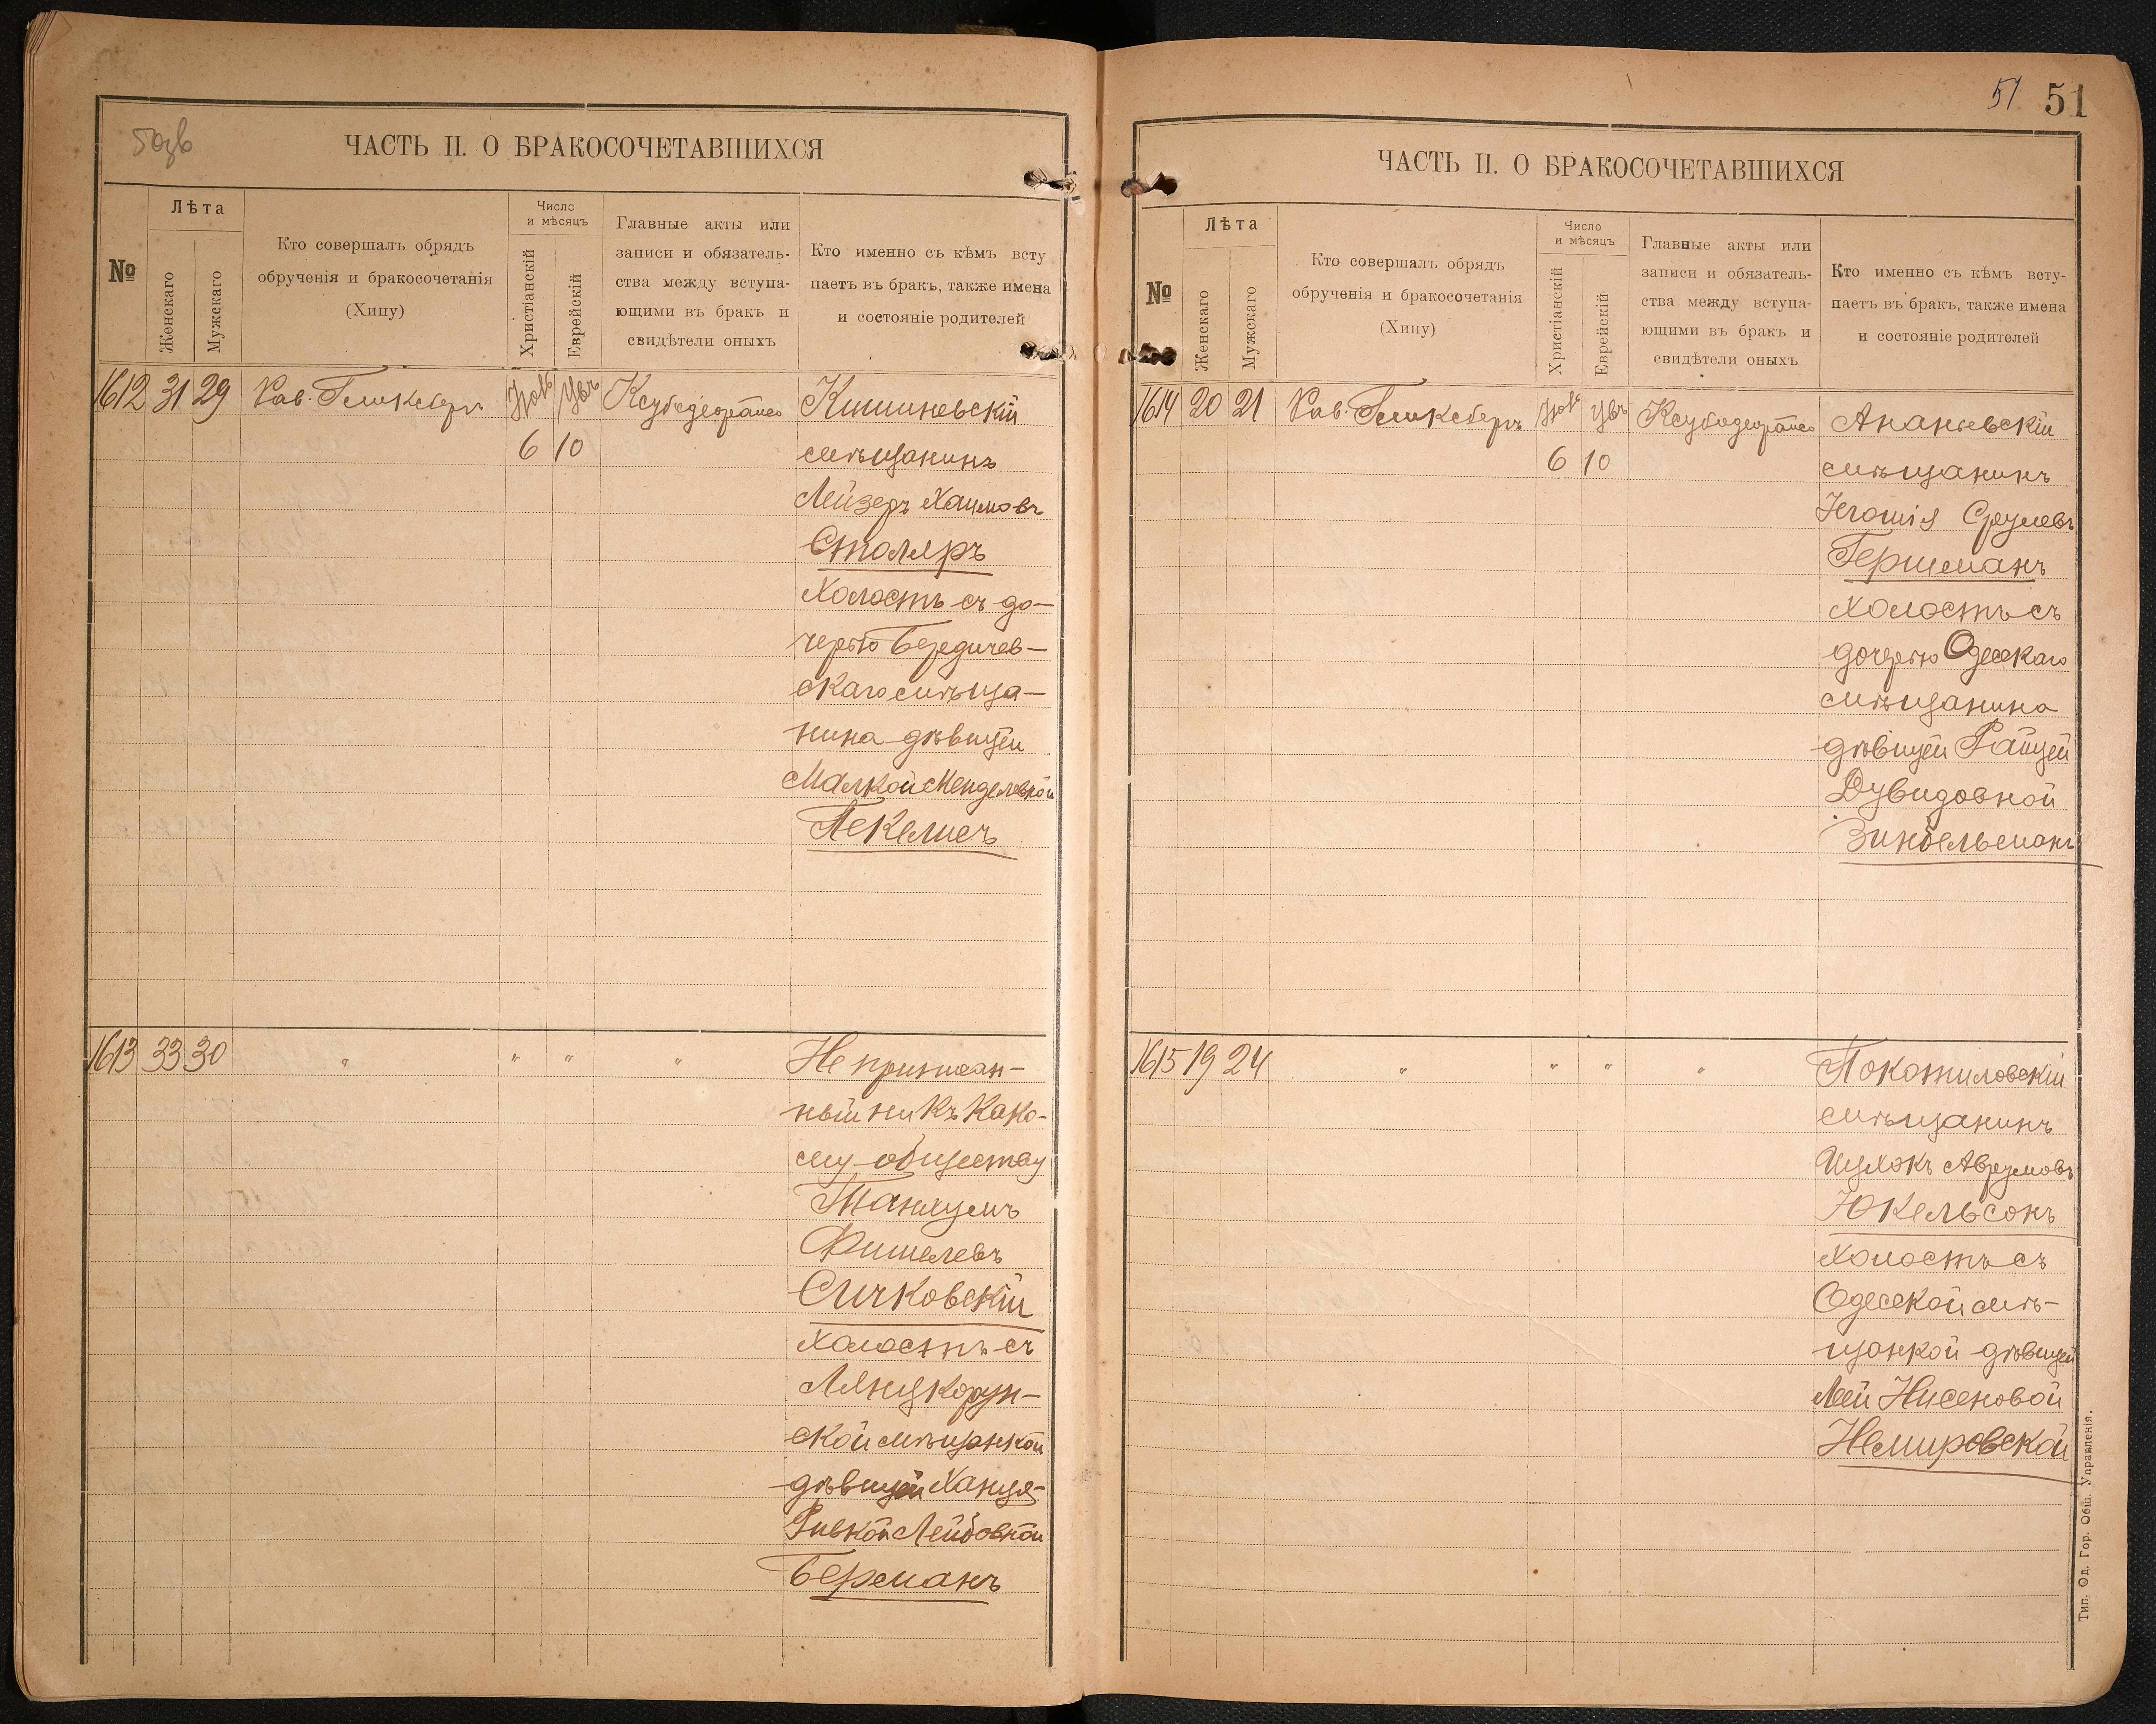 50зв
ЧАСТЬ II. О БРАКОСОЧЕТАВШИХСЯ
№
Лѣта
Женскаго
Мужскаго
Кто совершалъ обрядъ
обрученія и бракосочетанія
(Хипу)
Число
и мѣсяцъ
Христіанскій
Еврейскій
Главные акты или
записи и обязатель-
ства между вступа-
ющими въ бракъ и
свидѣтели оныхъ
Кто именно съ кѣмъ всту
паетъ въ бракъ, также имена
и состояніе родителей
1612 31 29 Рав. Гликсбергъ Кишиневскій
6 10 мѣщанинъ
Лейзеръ Хаимовъ
Столяръ
Холостъ съ до-
черью Бердичев-
скаго мѣща-
нина дѣвицей
Малкой Менделевной
Пекелисъ
1613 33 30 " " " " Не приписан-
ный ни къ како-
му обществу
Танхумъ
Фишелевъ
Сичковскій
Холостъ съ
Лянцкорун-
ской мѣщанкой
дѣвицей Ханця-
Ривкой Лейбовной
Берманъ
51 51
ЧАСТЬ II. О БРАКОСОЧЕТАВШИХСЯ
№
Лѣта
Женскаго
Мужскаго
Кто совершалъ обрядъ
обрученія и бракосочетанія
(Хипу)
Число
и мѣсяцъ
Христіанскій
Еврейскій
Главные акты или
записи и обязатель-
ства между вступа-
ющими въ бракъ и
свидѣтели оныхъ
Кто именно съ кѣмъ всту-
паетъ въ бракъ, также имена
и состояніе родителей
1614 20 21 Рав. Гликсбергъ Ананьевскій
6 10 мѣщанинъ
Срулевъ
Гершманъ
Холостъ съ
дочерью Одесскаго
мѣщанина
дѣвицей Райцей
Дувидовной
Зингельманъ
1615 19 24 " " " " Покотиловскій
мѣщанинъ
Ицхокъ Аврумовъ
Юкельсонъ
Холостъ съ
Одесской мѣ-
щанкой дѣвицей
Леей Нисеновой
Немировской
Тип. Од. Гор. Общ. Управленія.